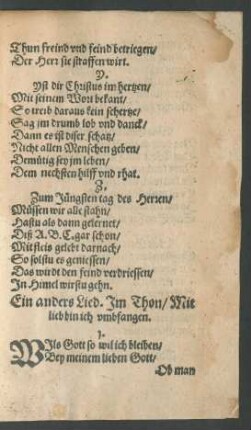 Thun freind vnd feind betriegen/
Der Herr sie straffen wirt.
Y.
Yst dir Christus im hertzen/
Mit seinem Wort bekant/
So treib daraus kein schertze/
Sag jm drumb lob vnd danck/
Dann es ist diser schatz/
Nicht allen Menschen geben/
Demütig sey im leben/
Dem nechsten hilff vnd rhat.
Z.
Zum Jüngsten tag des Herren/
Müssen wir alle stahn/
Hastu als dann gelernet/
Diß A. B. C. gar schon/
Mit fleis gelebt darnach/
So solstu es geniessen/
Das wirdt den feind verdriessen/
In Himel wirstu gehn.
Ein anders Lied. Im Thon/ Mit
lieb bin ich vmbfangen.
1.
WIls Gott so wil ich bleiben/
Bey meinem lieben Gott/
Ob man